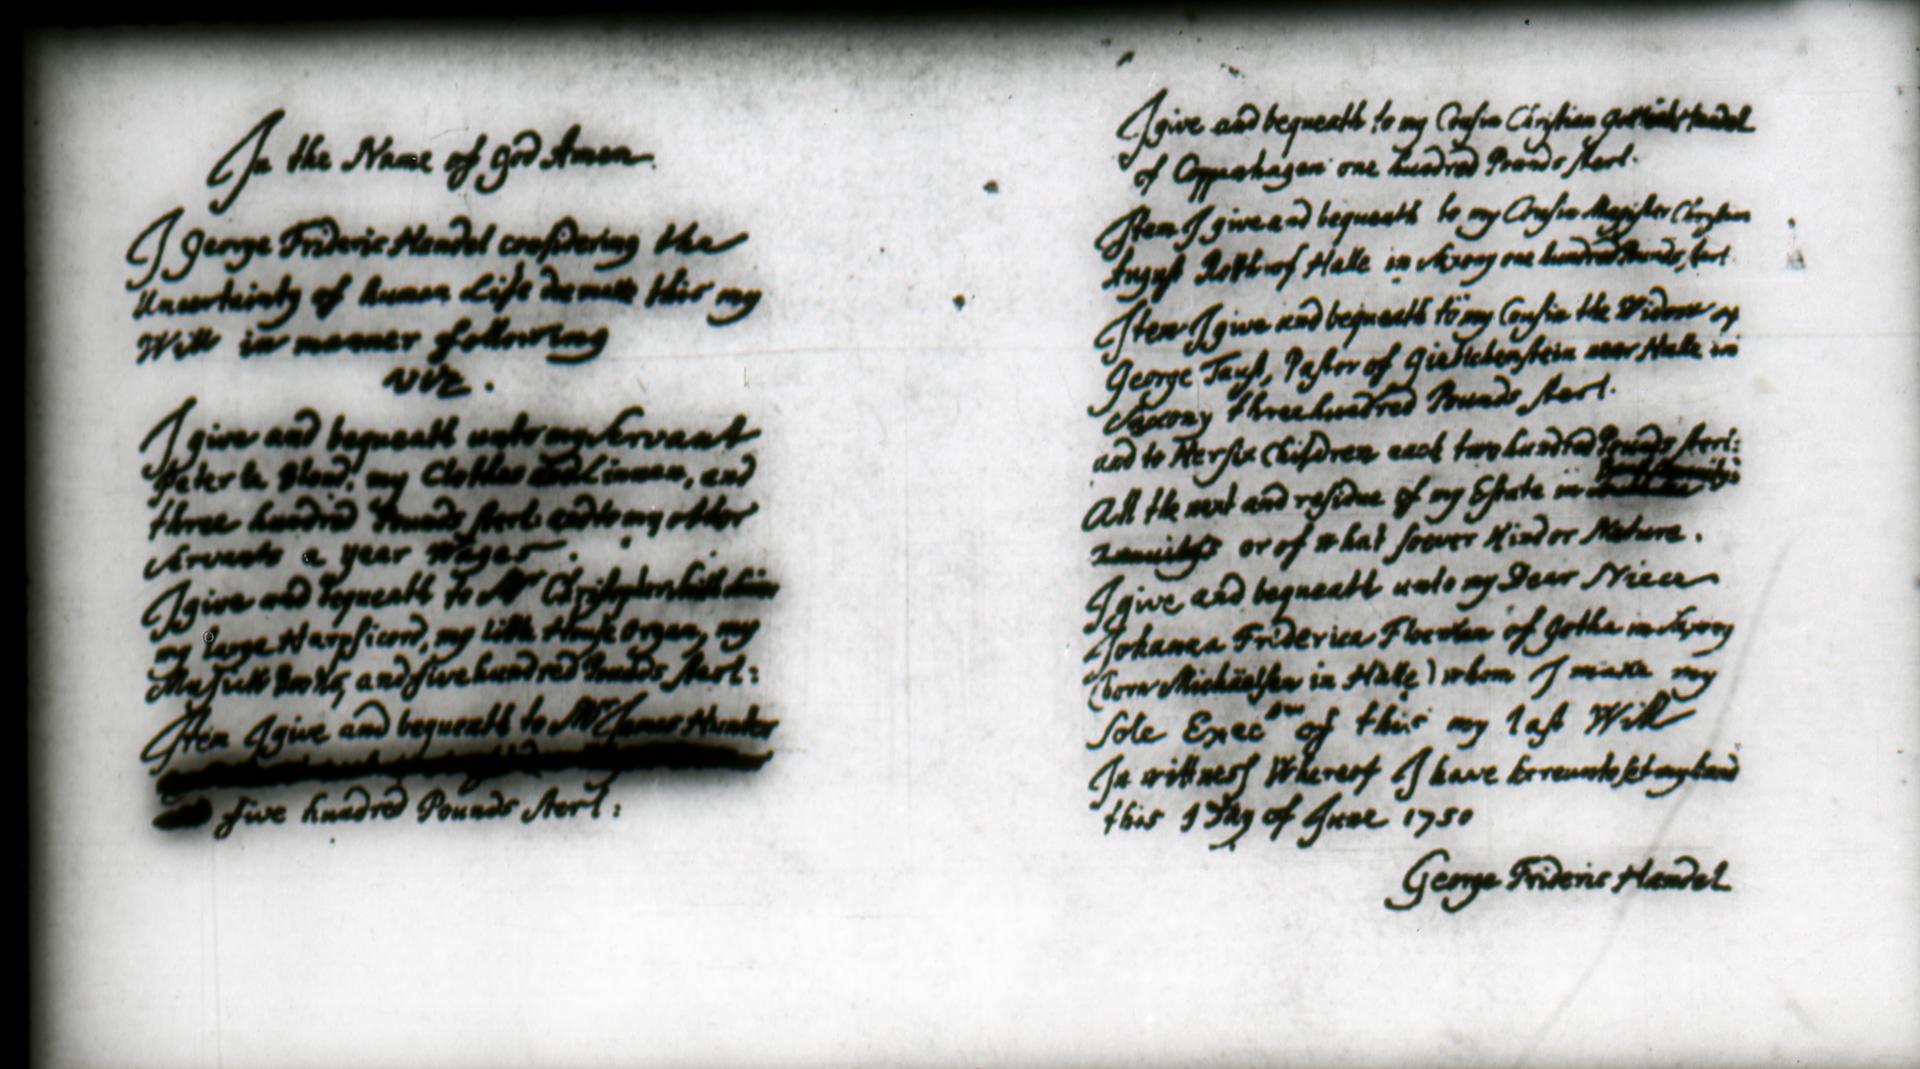 In the Name of God Amen.
I George Frideric Handel considering the
Uncertainty of human Life doe make this my
Will in manner following
viz.
I give and bequeath unto my Servant
Peter le Blond, my Clothes and Linnen, and
three hundred Pounds sterl: and to my other
Servants a year Wages.
I give and bequeath to Mr Christopher Smith
my large Harpsicord, my little House Organ, my
Musick Books, and five hundred Pounds sterl:
Item I give and bequeath to Mr James Hunter
five hundred Pounds sterl:
I give and bequeath to my Cousin Christian Gottlieb Handel
of Coppenhagen one hundred Pounds sterl.
Item I give and bequeath to my Cousin Magister Christian
August Rotth of Halle in Saxony one hundred Pounds sterl
Item I give and bequeath to my Cousin the Widow of
George Taust, Pastor of Giebichenstein near Halle in
Saxony three hundred Pounds sterl.
and to Her six Children each two hundred Pounds sterl:
All the next and residue of my Estate in
or of what soever Kind or Nature.
I give and bequeath unto my Dear Niece
Johanna Friderica Floerken of Gotha in Saxony
(born Michaëlsen in Halle) whom I make my
Sole Exectrix of this my last Will
In wittness Whereof I have hereunto set my hand
this 1 Day of June 1750
George Frideric Handel